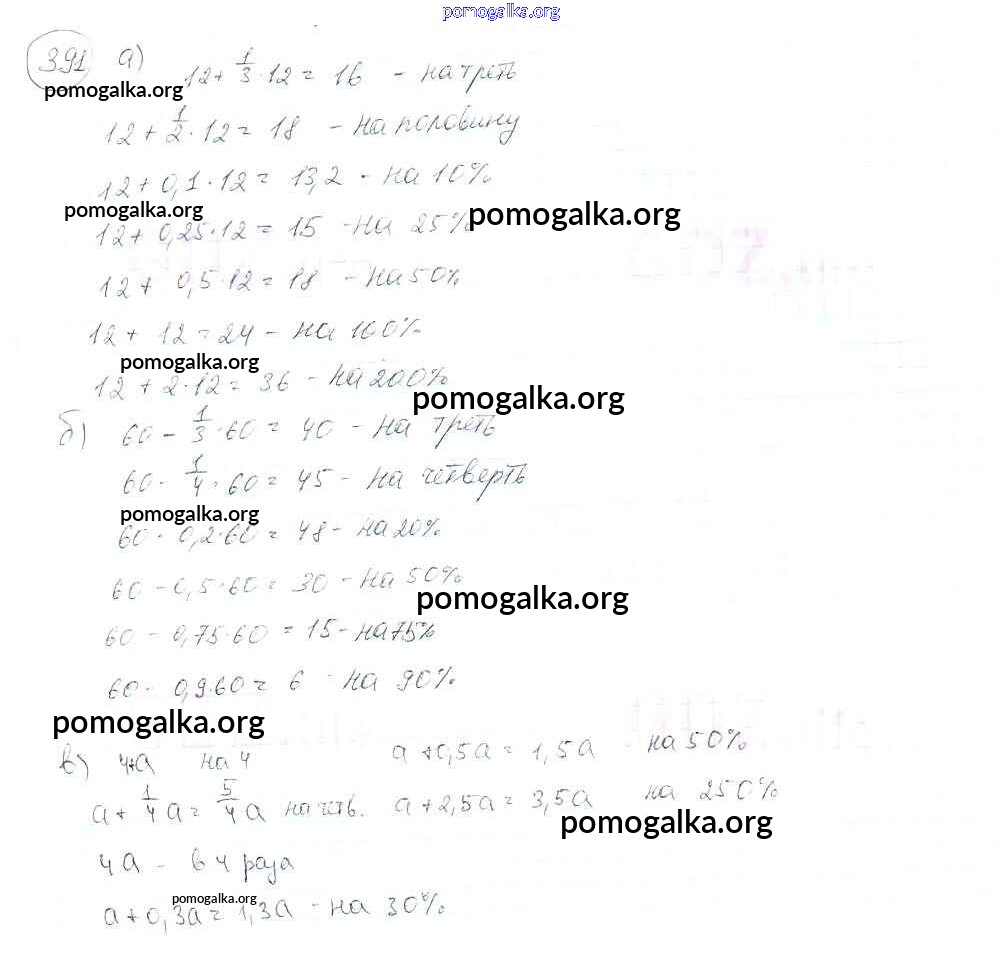 pomogalka.org
391 а) 12 + 1/3 · 12 = 16 - на треть
pomogalka.org
12 + 1/2 · 12 = 18 - на половину
12 + 0,1 · 12 = 13,2 - на 10%
pomogalka.org
pomogalka.org
12 + 0,25 · 12 = 15 - на 25%
12 + 0,5 · 12 = 18 - на 50%
12 + 12 = 24 - на 100%
pomogalka.org
12 + 2 · 12 = 36 - на 200%
pomogalka.org
б) 60 - 1/3 · 60 = 40 - на треть
60 - 1/4 · 60 = 45 - на четверть
pomogalka.org
60 - 0,2 · 60 = 48 - на 20%
60 - 0,5 · 60 = 30 - на 50%
pomogalka.org
60 - 0,75 · 60 = 15 - на 75%
60 - 0,9 · 60 = 6 - на 90%
pomogalka.org
в) 4+a на 4 a + 0,5a = 1,5a на 50%
a + 1/4 a = 5/4 a на четв. a + 2,5a = 3,5a на 250%
pomogalka.org
4a - в 4 раза
pomogalka.org
a + 0,3a = 1,3a - на 30%